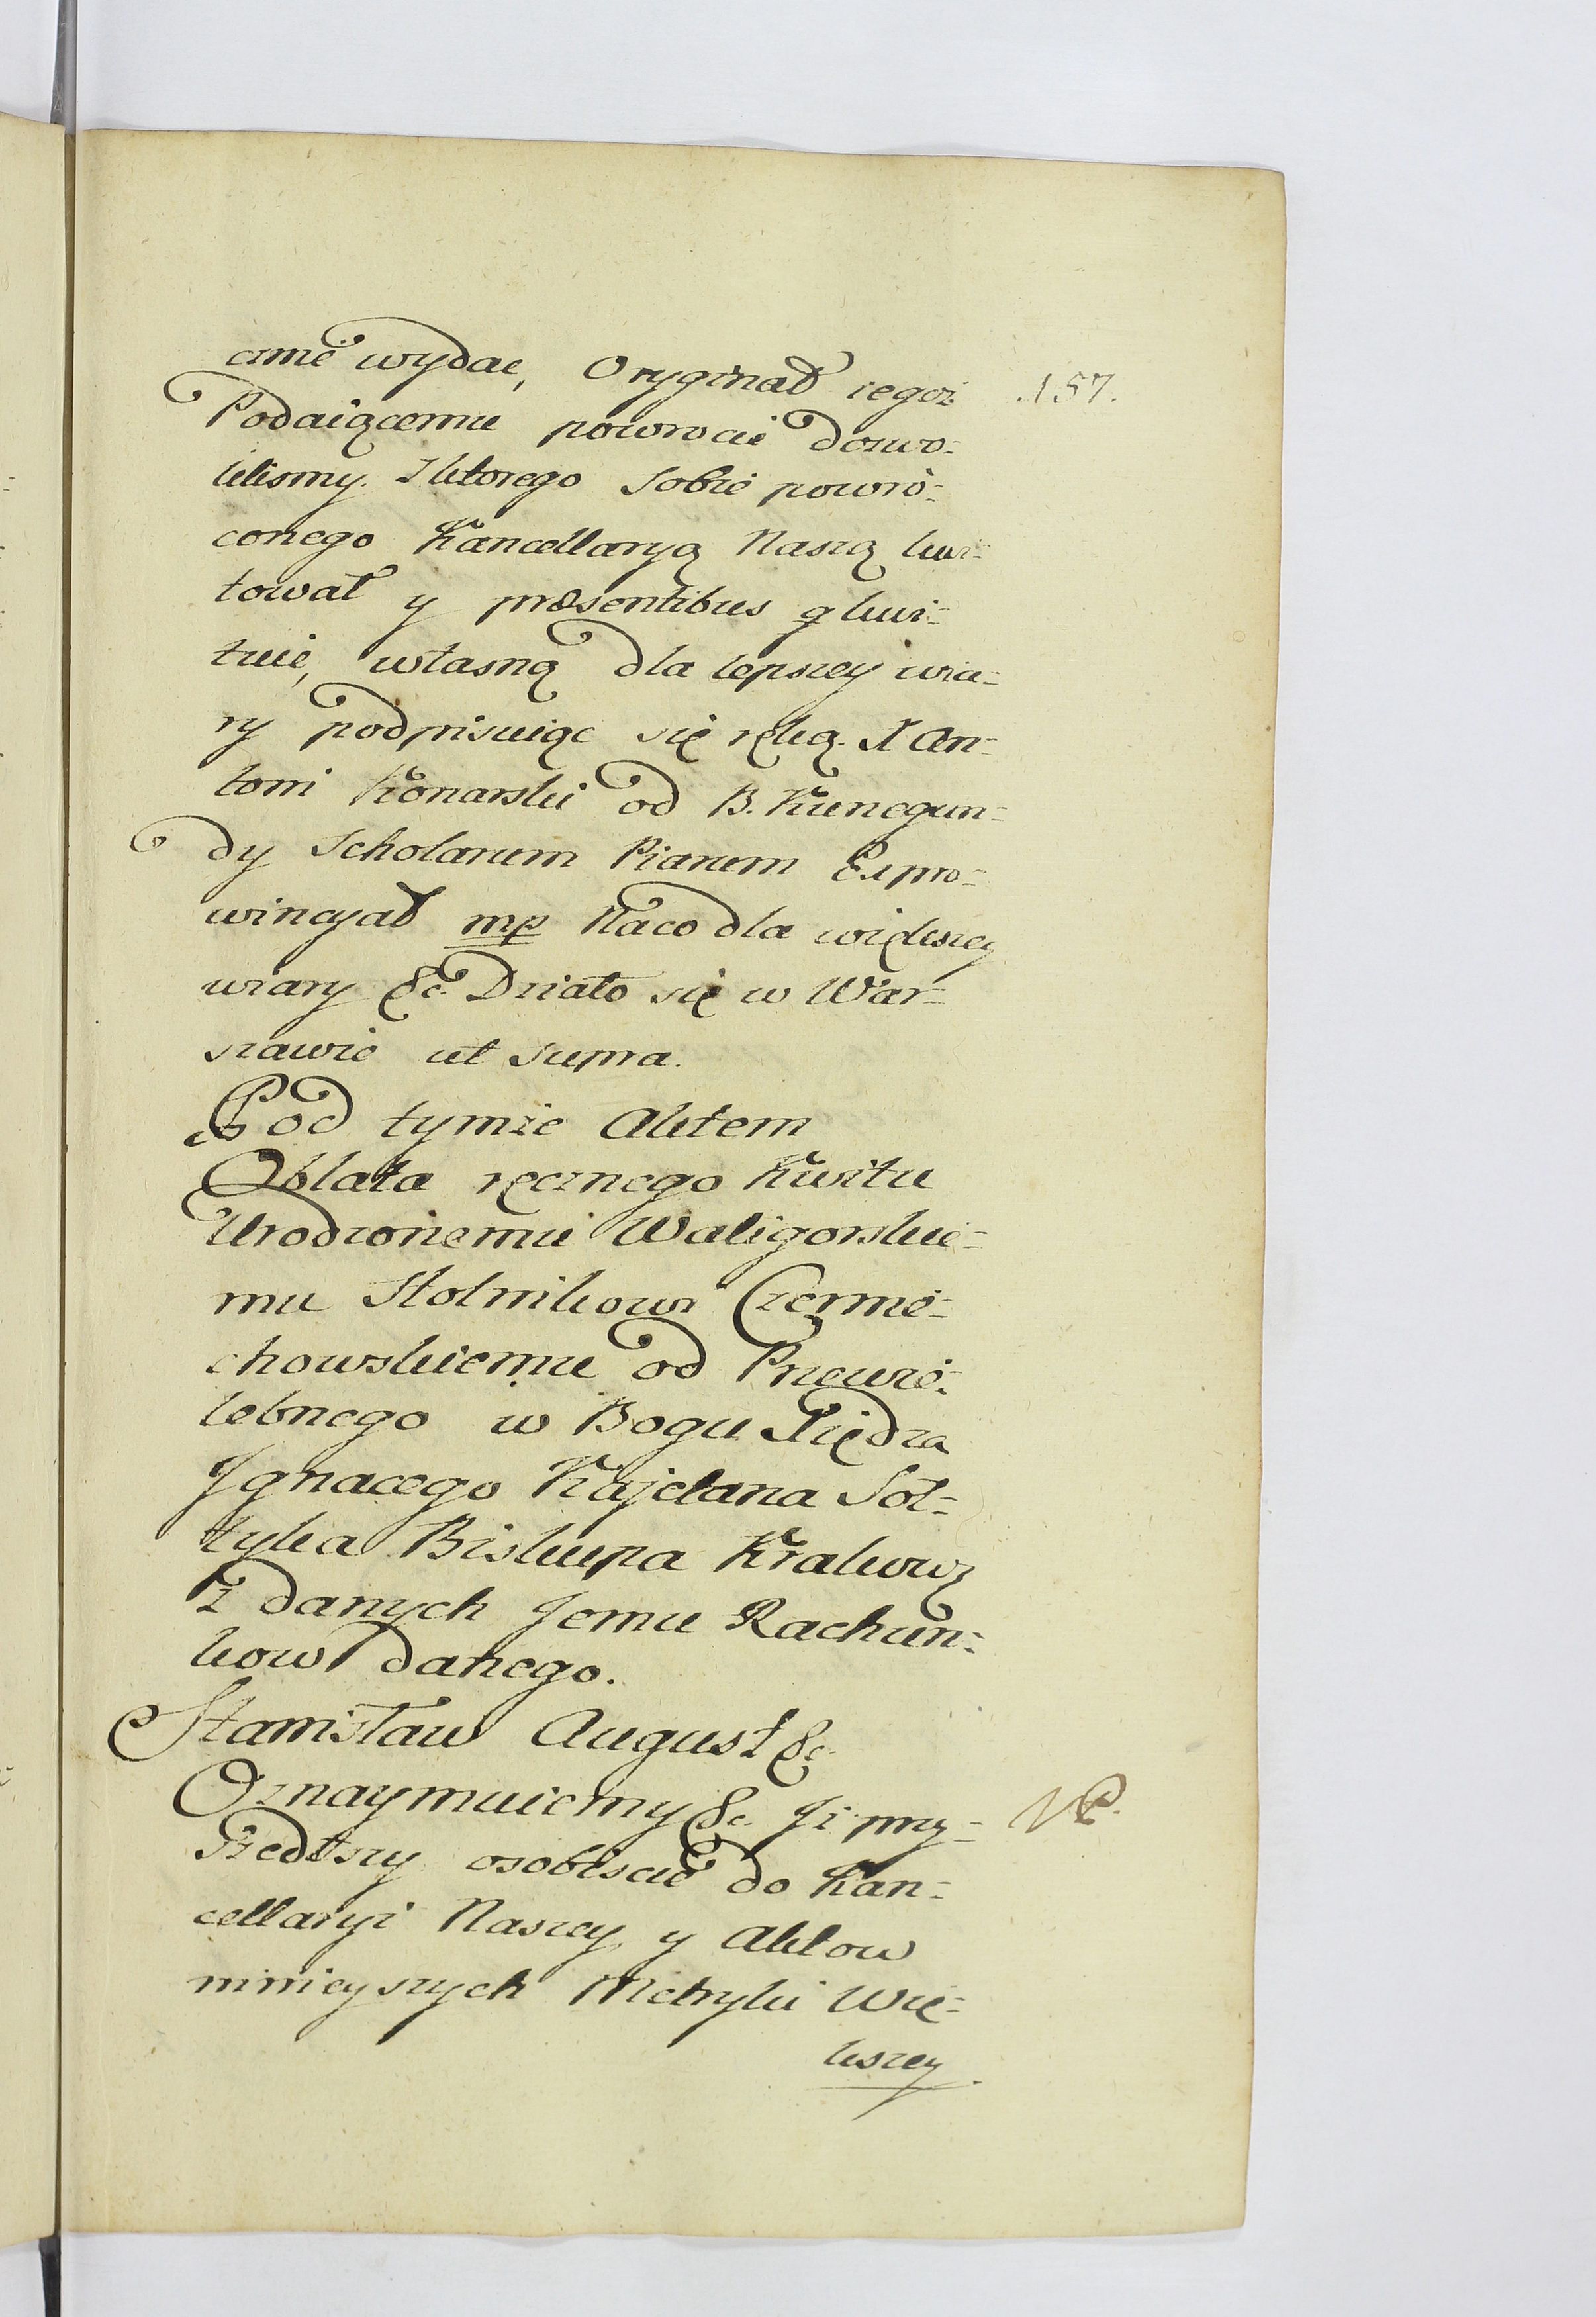 cznie wydac, Oryginał tegoż 157.
Podaiącemu powrocić dozwo=
lilismy. Z ktorego sobie powró=
conego Kancellaryą Naszą kwi=
tował y præsentibus q kwi=
tuie, własną dla lepszey wia=
ry podpisuiąc się ręką. X An=
toni Konarski od B. Kunegun=
dy Scholarum Piarum Expro=
wincyał mp Naco dla większey
wiary &c. Działo się w War=
szawie ut supra.
Pod tymże Aktem
Oblata ręcznego Kwitu
Urodzonemu Waligorskie=
mu Stolnikowi Czernie=
chowskiemu od Przewie=
lebnego w Bogu Xiędza
Ignacego Kajetana Soł=
tyka Biskupa Krakowz
z danych Jemu Rachun=
kow danego.
Stanisław August &c.
Oznaymuiemy &c. Iż przy= NP.
szedłszy osobiscie do Kan=
cellaryi Naszey y Aktow
ninieyszych Metryki Wię=
kszey